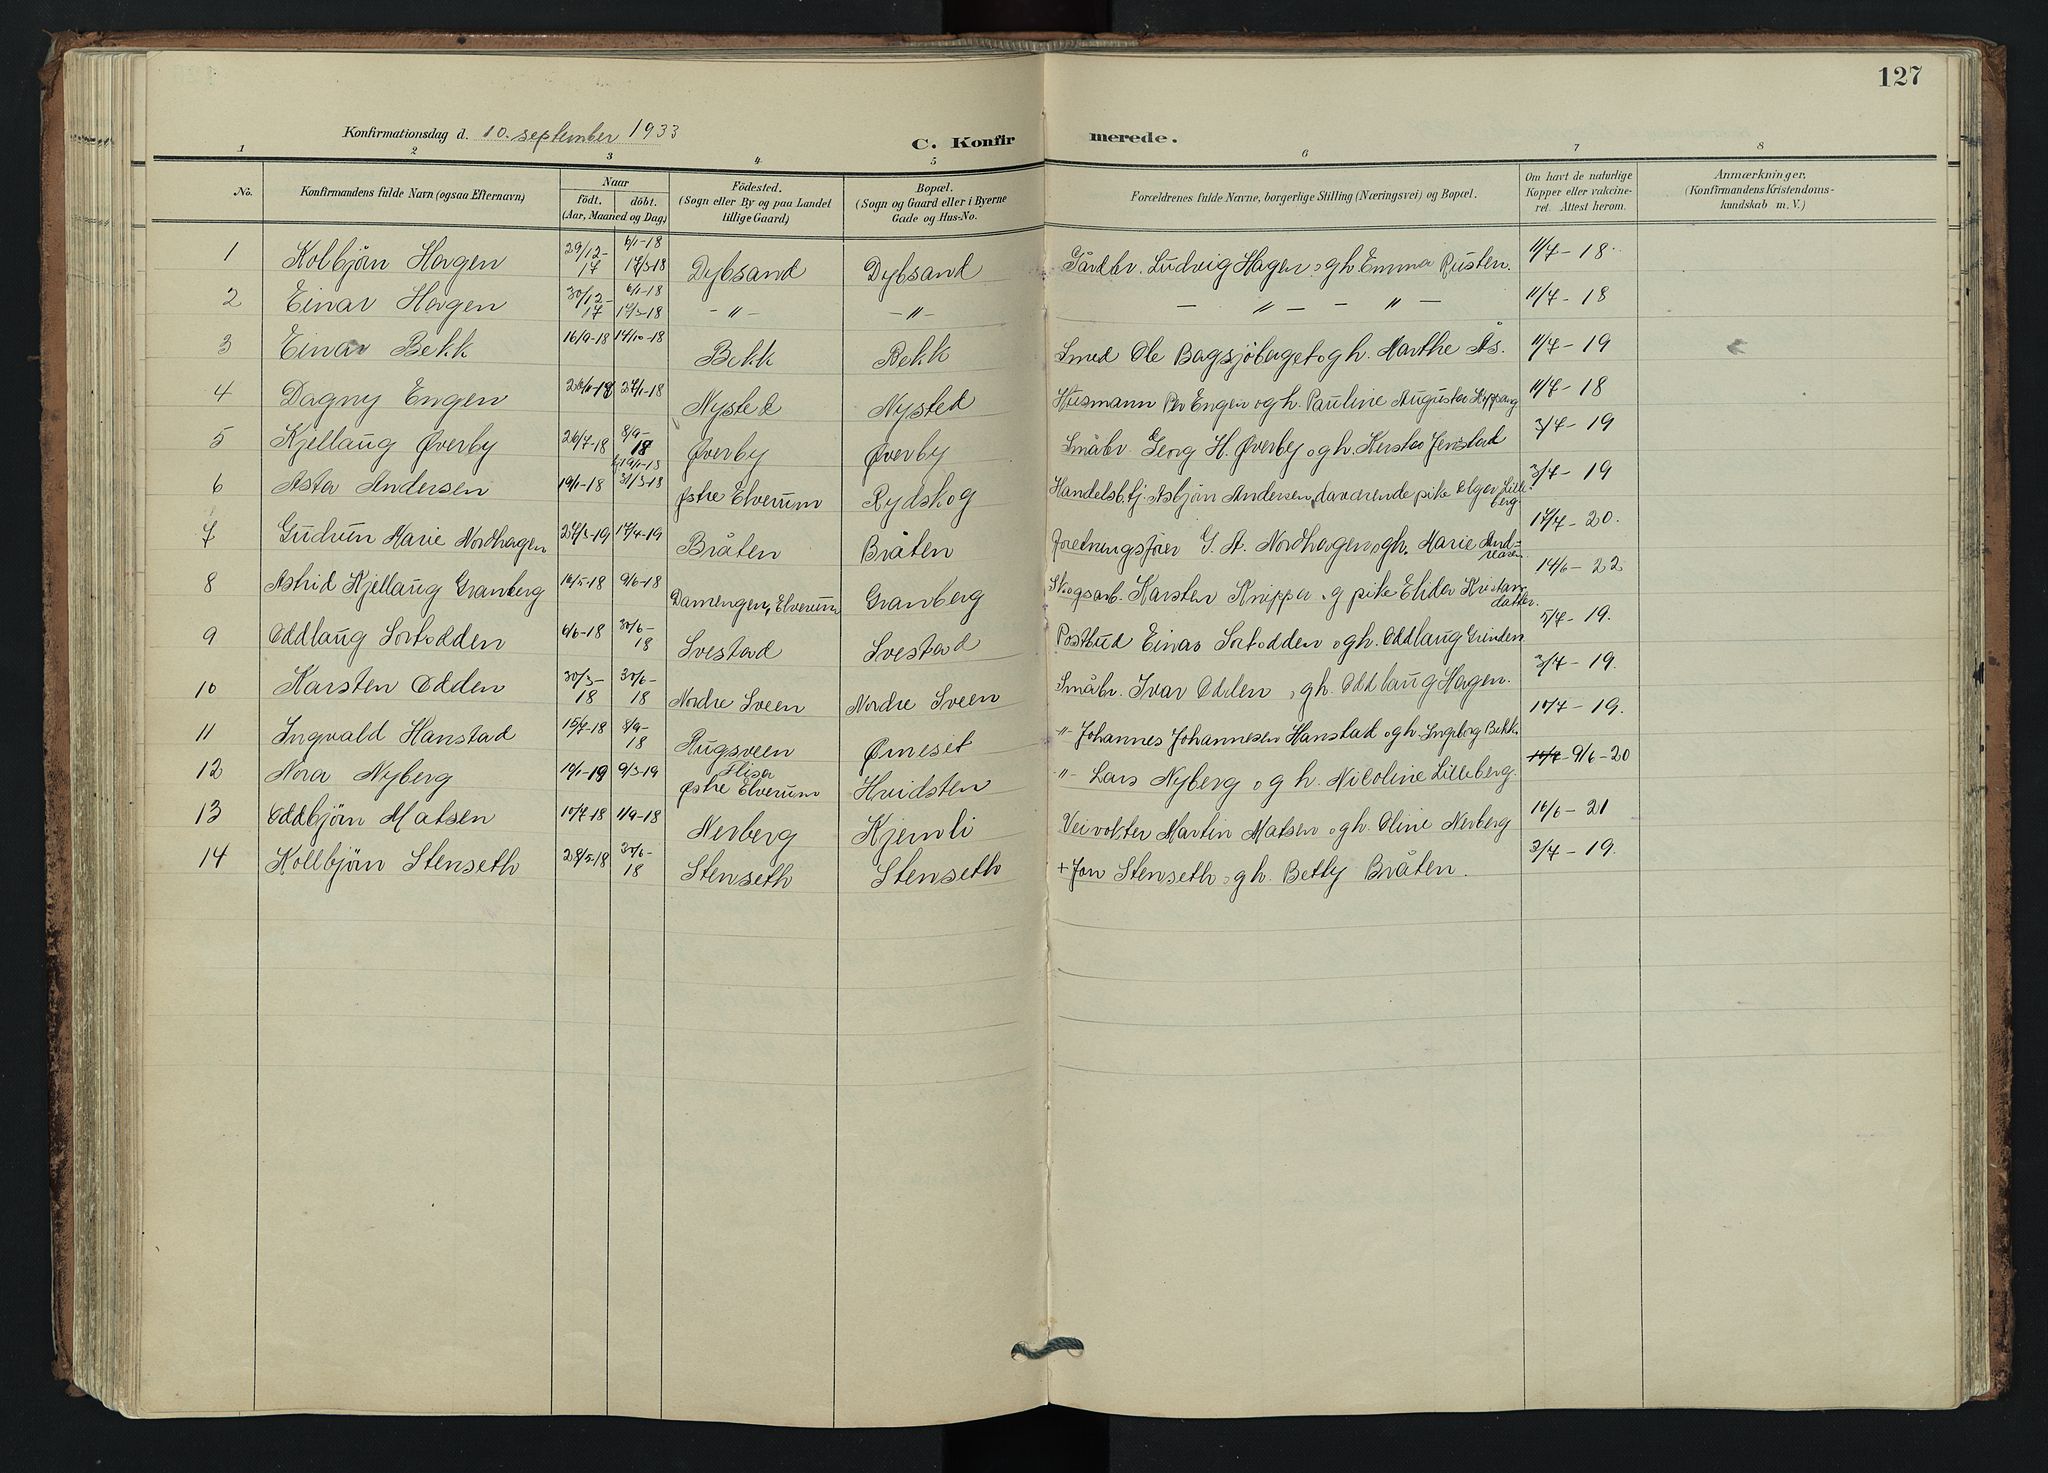 127
Konfirmationsdag d. 10. september 1933
C. Konfirmerede.
1 2 3 4 5 6 7 8
No. Konfirmandens fulde Navn (ogsaa Efternavn) Naar födt. döbt. (Aar, Maaned og Dag) Födested. (Sogn eller By og paa Landet tillige Gaard) Bopæl. (Sogn og Gaard eller i Byerne Gade og Hus-No. Forældrenes fulde Navne, borgerlige Stilling (Næringsvei) og Bopæl. Om havt de naturlige Kopper eller vakcineret. Attest herom. Anmærkninger. (Konfirmandens Kristendomskundskab m. V.)
1 Kolbjörn Hagen 29/12-17 6/1-18 17/3-18 Dybsand Dybsand Gårdbr. Ludvig Hagen og h. Emma Rusten. 11/7-18
2 Einar Hagen 30/12-17 6/1-18 17/3-18 -"- -"- - " - " - 11/7-18
3 Einar Bekk 16/9-18 14/10-18 Bekk Bekk Smed Ole Bagsjöberget og h. Marthe Ås. 11/7-19
4 Dagny Engen 27/1-18 Nysted Nysted Husmann Per Engen og h. Pauline Augusta 11/7-18
5 Kjellaug Øverby 26/7-18 8/9-18 Øverby Øverby Småbr. Georg H. Øverby og h. Kersta Jenstad 3/7-19
6 Asta Andersen 19/1-18 31/3-18 Østre Elverum Rydskog Handelsb.tj. Asbjörn Andersen, daværende pike Olga Lilleberg 3/7-19
7 Gudrun Marie Nordhagen 27/3-19 17/4-19 Bråten Bråten Forretningsförer G. A. Nordhagen og h. Marie Andreasen. 17/7-20.
8 Astrid Kjellaug Granberg 16/5-18 9/6-18 Damengen, Elverum Granberg Skogsarb. Karsten Knippa og pike Elida Kristiansdatter. 14/6-22
9 Oddlaug Sortodden 6/6-18 30/6-18 Svestad Svestad Postbud Einar Sortodden og h. Oddlaug Grinden 5/7-19.
10 Karsten Odden 30/3-18 30/6-18 Nordre Sveen Nordre Sveen Småbr. Ivar Odden og h. Oddlaug Hagen. 3/7-19.
11 Ingvald Hanstad 15/7-18 8/9-18 Rugsveen Ømeset " Johannes Johannesen Hanstad og h. Ingeborg Bekk. 10/7-19.
12 Nora Nyberg 10/1-19 9/3-19 Flisa Østre Elverum Hvidsten " Lars Nyberg og h. Nicoline Lilleberg. 9/6-20
13 Oddbjörn Matsen 10/7-18 1/9-18 Nerberg Kjemli Veivokter Martin Matsen og h. Oline Nerberg 16/6-21
14 Kollbjörn Stenseth 28/5-18 30/6-18 Stenseth Stenseth + Jon Stenseth og h. Betty Bråten. 3/7-19.